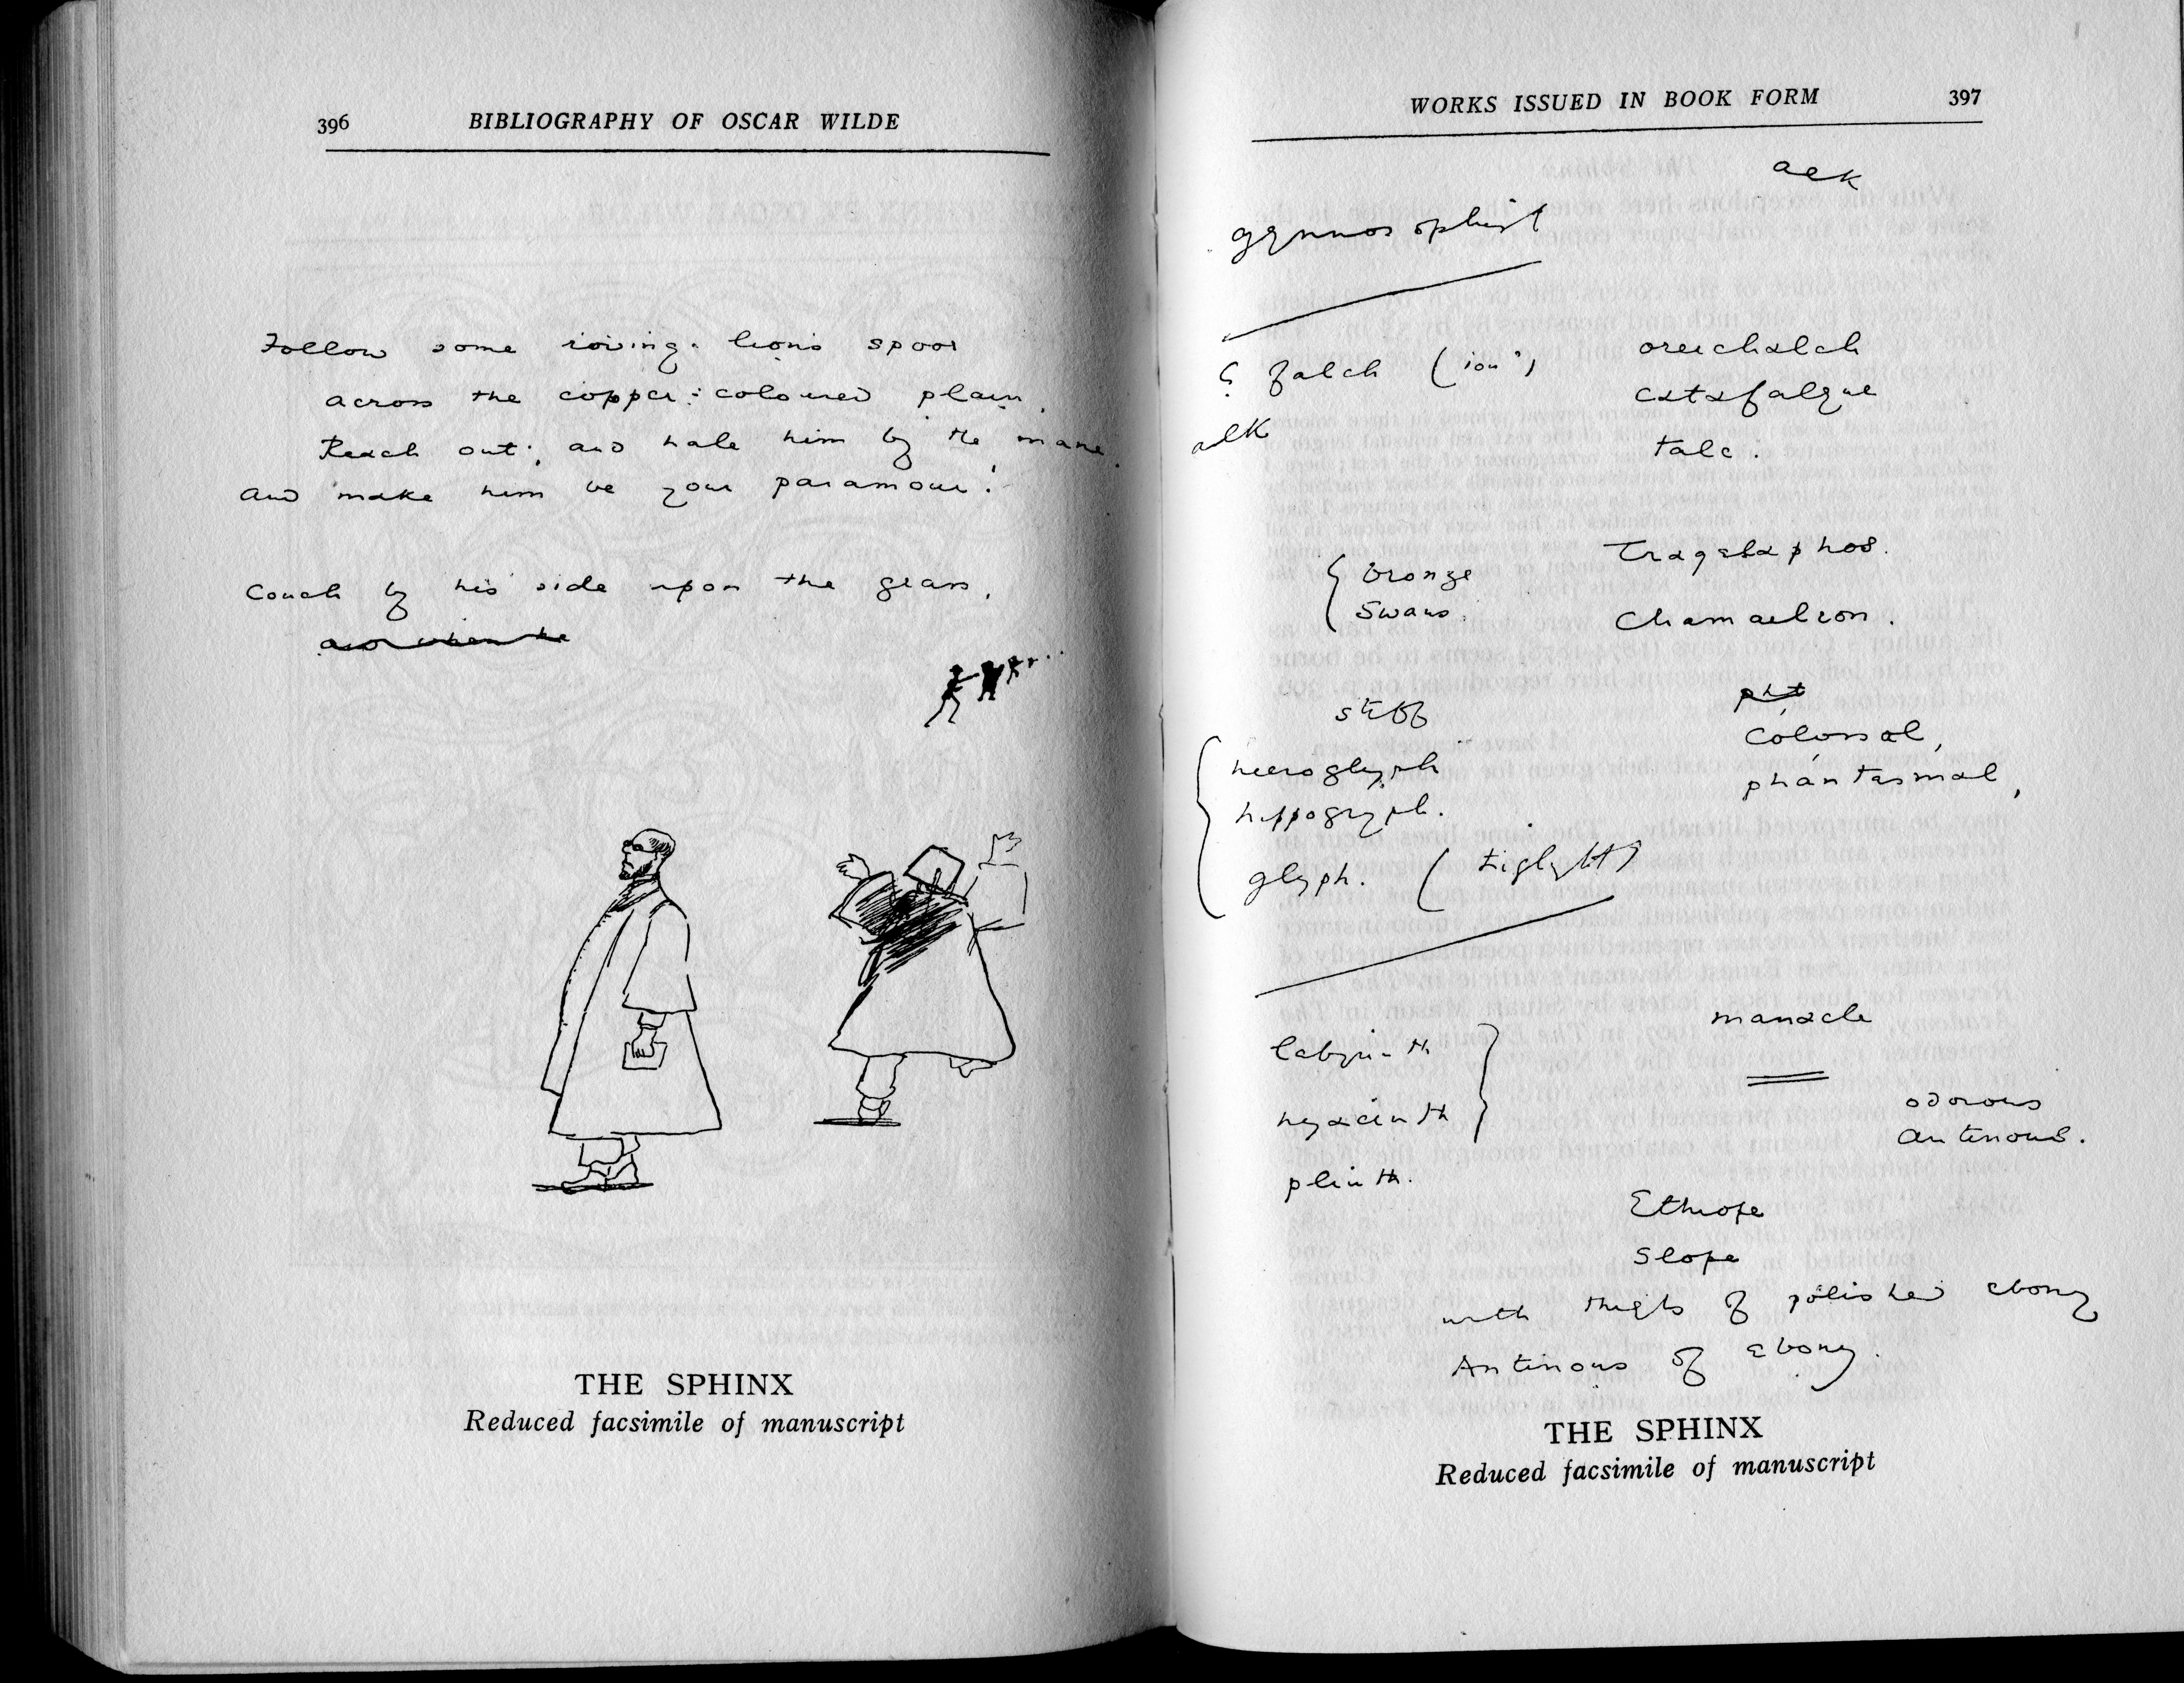 396 BIBLIOGRAPHY OF OSCAR WILDE
Follow some roving lion's spoor
across the copper-coloured plain,
Reach out, and hale him by the mane
and make him be your paramour!
Couch by his side upon the grass,
and when he
THE SPHINX
Reduced facsimile of manuscript
WORKS ISSUED IN BOOK FORM 397
gymnosophist
falch (ion)
oreichalch
catafalque
talc.
Tragelaphos.
bronze
Swans.
Chamaeleon.
colossal,
phantasmal,
hieroglyph
hippogryph.
glyph.
manacle
labyrinth
hyacinth
plinth.
odorous
Antinous.
Ethiope
Slope
with thighs of polished ebony
Antinous of ebony.
THE SPHINX
Reduced facsimile of manuscript